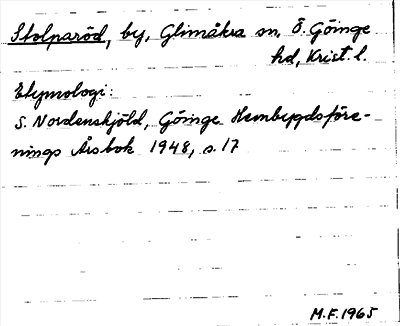 Stolparöd, by, Glimåkra sn, Ö. Göinge
hd, Krist. l.
Etymologi:
S. Nordenskjöld, Göinge Hembygdsföre-
nings Årsbok 1948, s. 17
M.F. 1965